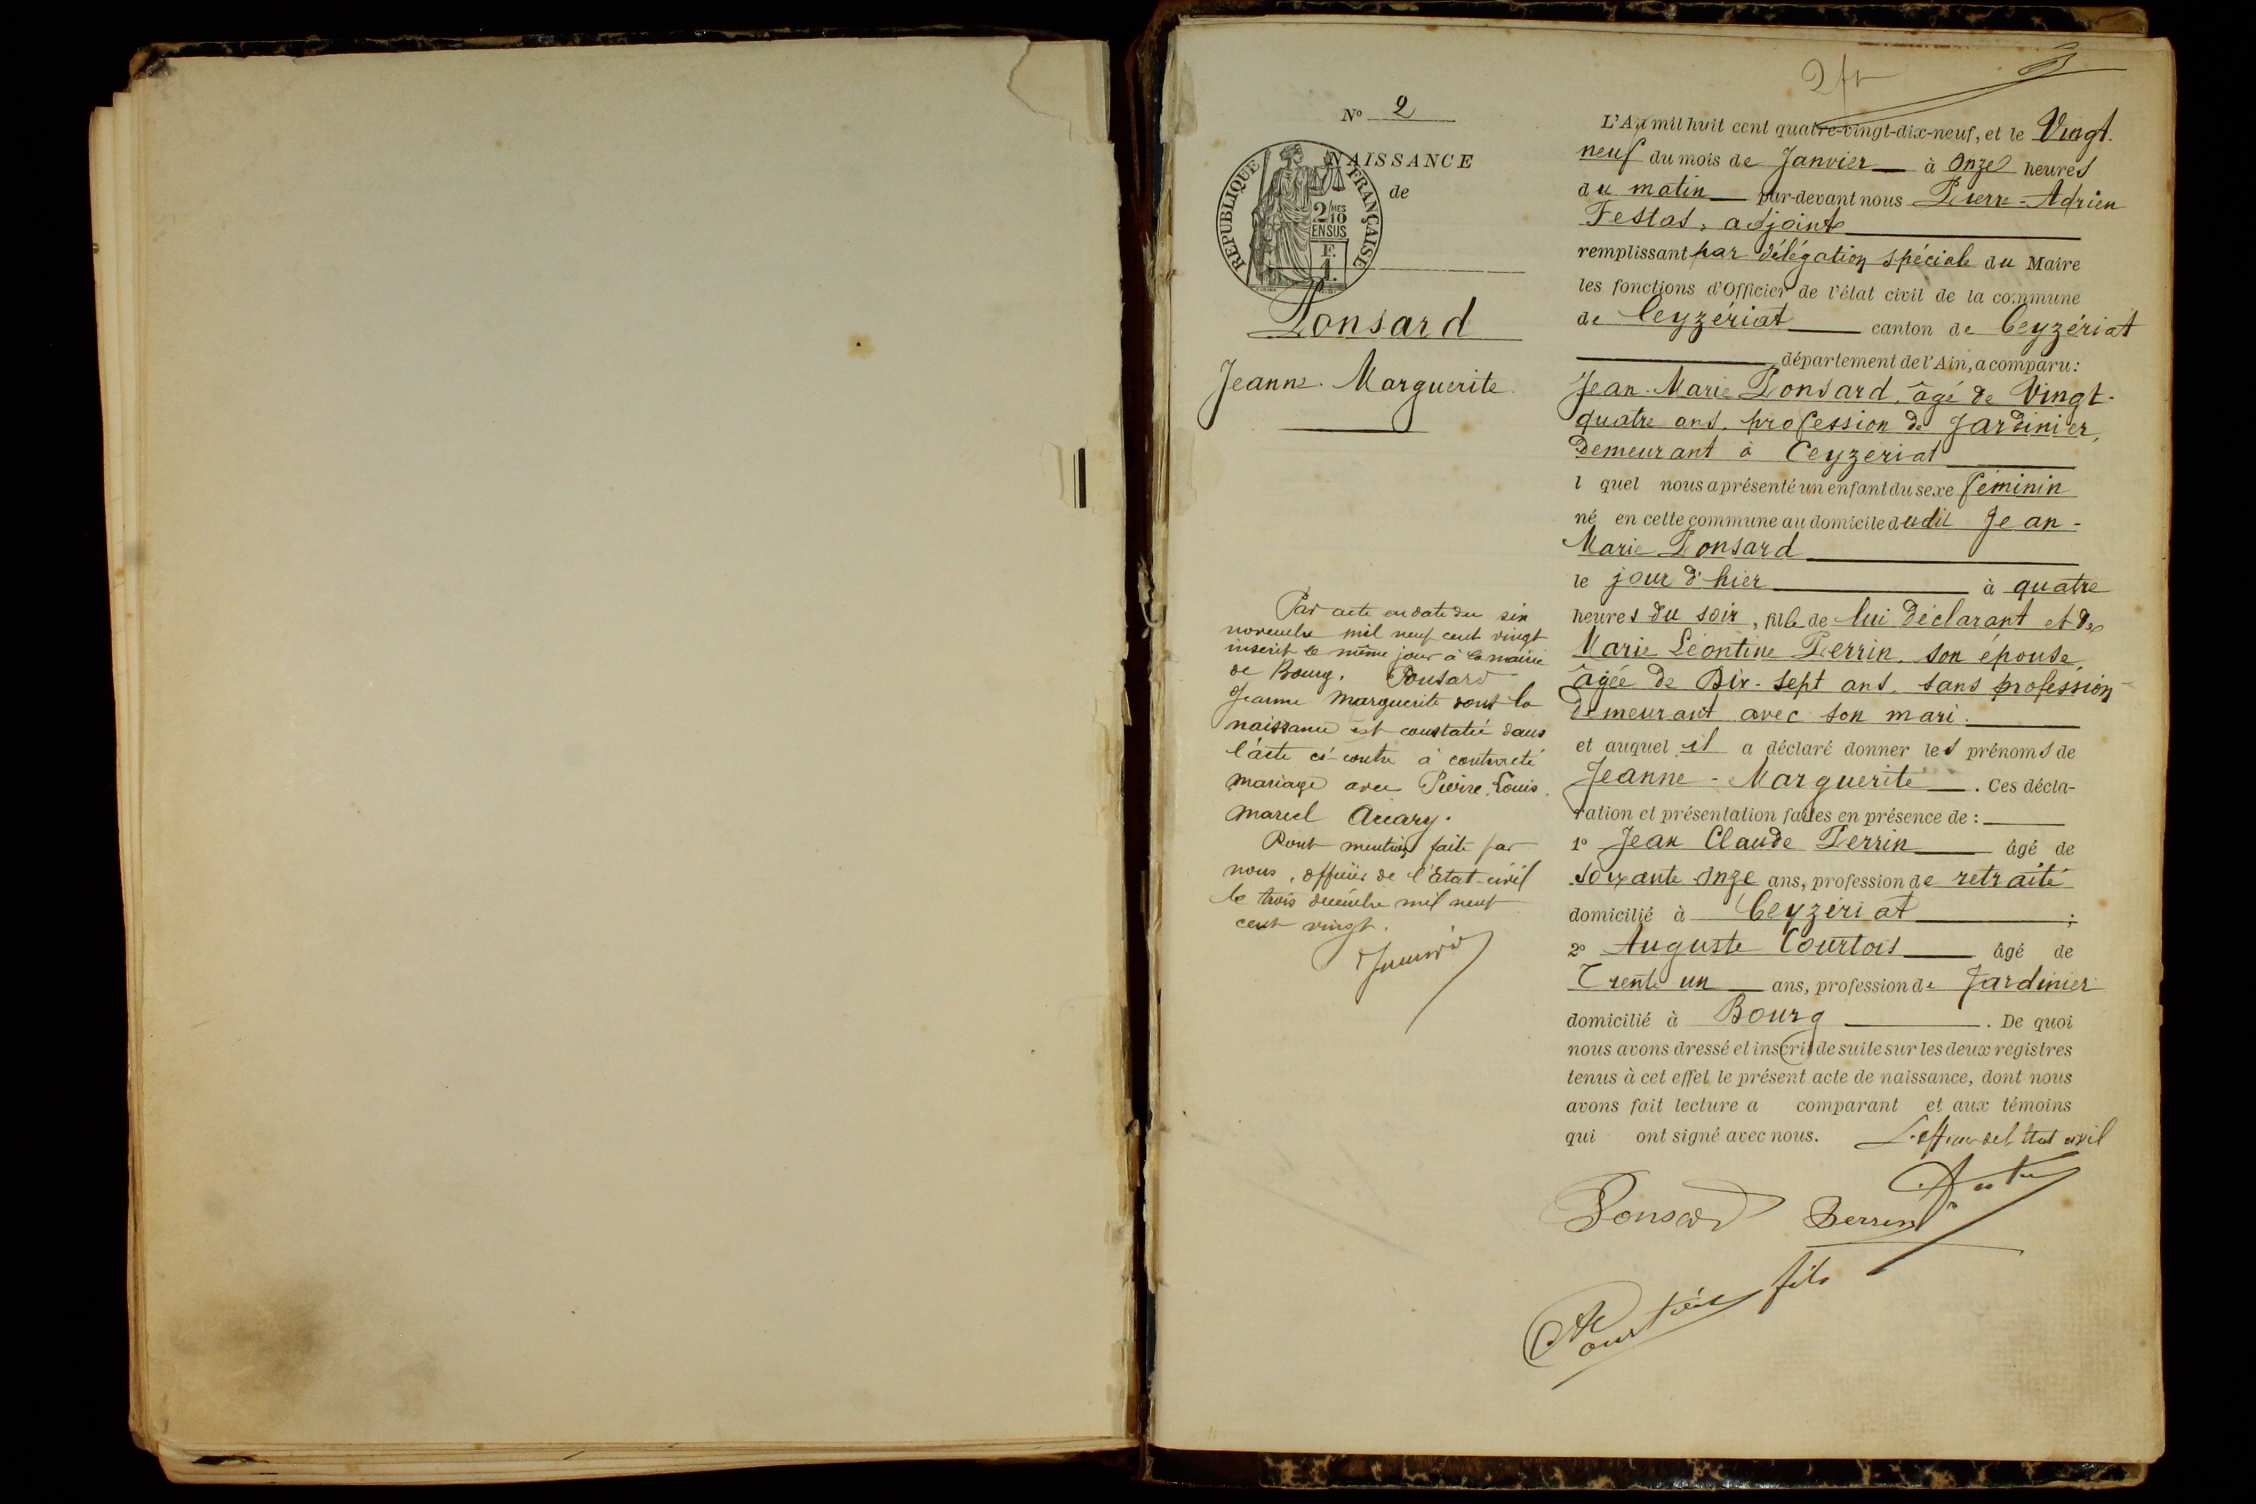 N° 2
NAISSANCE
de
RÉPUBLIQUE FRANÇAISE
2/10 MES
EN SUS
F.
1.
Ponsard
Jeanne-Marguerite.
Par acte en date du six
novembre mil neuf cent vingt
inscrit le même jour à la mairie
de Bourg. Ponsard
Jeanne Marguerite dont la
naissance est constatée dans
l'acte ci-contre à contracté
mariage avec Pierre-Louis.
Marcel
Dont mention faite par
nous, officier de l'Etat-civil
le trois décembre mil neuf
cent vingt.
L'An mil huit cent quatre-vingt-dix-neuf, et le Vingt-
neuf du mois de Janvier à Onze heures
du matin par-devant nous Pierre-Adrien
Festas, adjoint
remplissant par délégation spéciale du Maire
les fonctions d'Officier de l'état civil de la commune
de Ceyzériat canton de Ceyzériat
département de l'Ain, a comparu:
Jean-Marie Ponsard, âgé de Vingt-
quatre ans, profession de Jardinier,
Demeurant à Ceyzériat
l quel nous a présenté un enfant du sexe féminin
né en cette commune au domicile dudit Jean-
Marie Ponsard
le jour d'hier à quatre
heures du soir, fille de lui déclarant et de
Marie Léontine Perrin, son épouse,
âgée de Dix-sept ans, sans profession
demeurant avec son mari.
et auquel il a déclaré donner les prénoms de
Jeanne-Marguerite. Ces décla-
ration et présentation faites en présence de:
1° Jean Claude Perrin âgé de
Soixante Onze ans, profession de retraité
domicilié à Ceyzériat;
2° Auguste Courtois âgé de
Trente un ans, profession de Jardinier
domicilié à Bourg. De quoi
nous avons dressé et inscrit de suite sur les deux registres
tenus à cet effet le présent acte de naissance, dont nous
avons fait lecture a comparant et aux témoins
qui ont signé avec nous. L'officier de l'état civil
Ponsard Perrin
fils